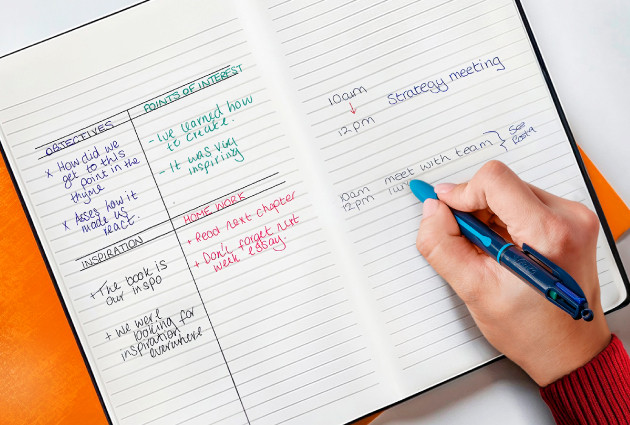 OBJECTIVES
x How did we
get to this
point in the
thyme
x Asses how it
made us
react.
POINTS OF INTEREST
- We learned how
to create.
- It was very
inspiring
INSPIRATION
+ The book is
our inspo
+ We were
looking for
inspiration
everywhere
HOME WORK
+ Read next chapter
+ Don't forget next
week essay.
10am
↓
12pm
Strategy meeting
10am
12pm
meet with team
See